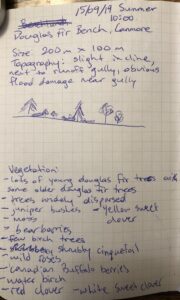 15/09/19 Summer
10:00
Douglas fir Bench, Canmore
Size: 200m x 100m
Topography: slight incline,
next to runoff gully, obvious
flood damage near gully
Vegetation:
- lots of young douglas fir trees with
some older douglas fir trees
- trees widely dispersed
- juniper bushes - yellow sweet
- moss clover
- bear berries
- few birch trees
- shrubby cinquefoil
- wild roses
- Canadian Buffalo berries
- water birch
- red clover - white sweet clover